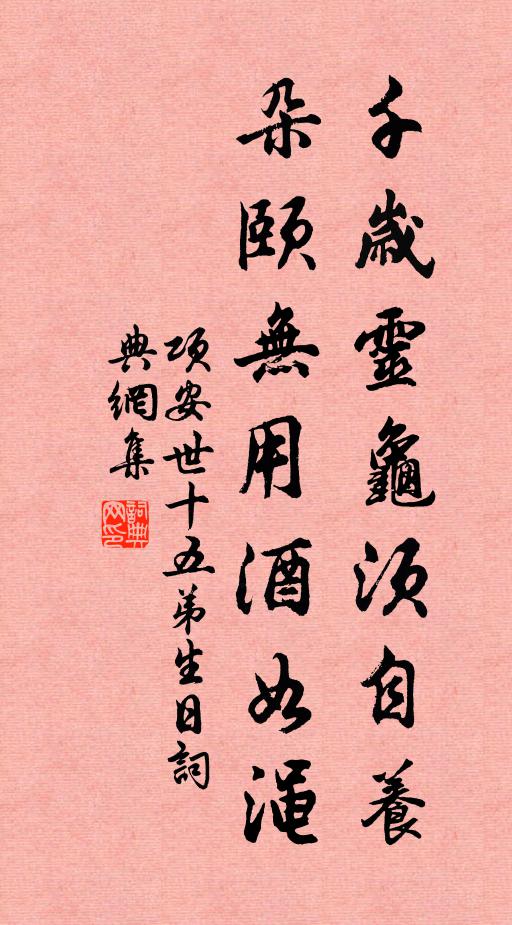 千歲靈龜須自養
朵頤無用酒如澠
項安世十五弟生日詞
典網集
詞典网印